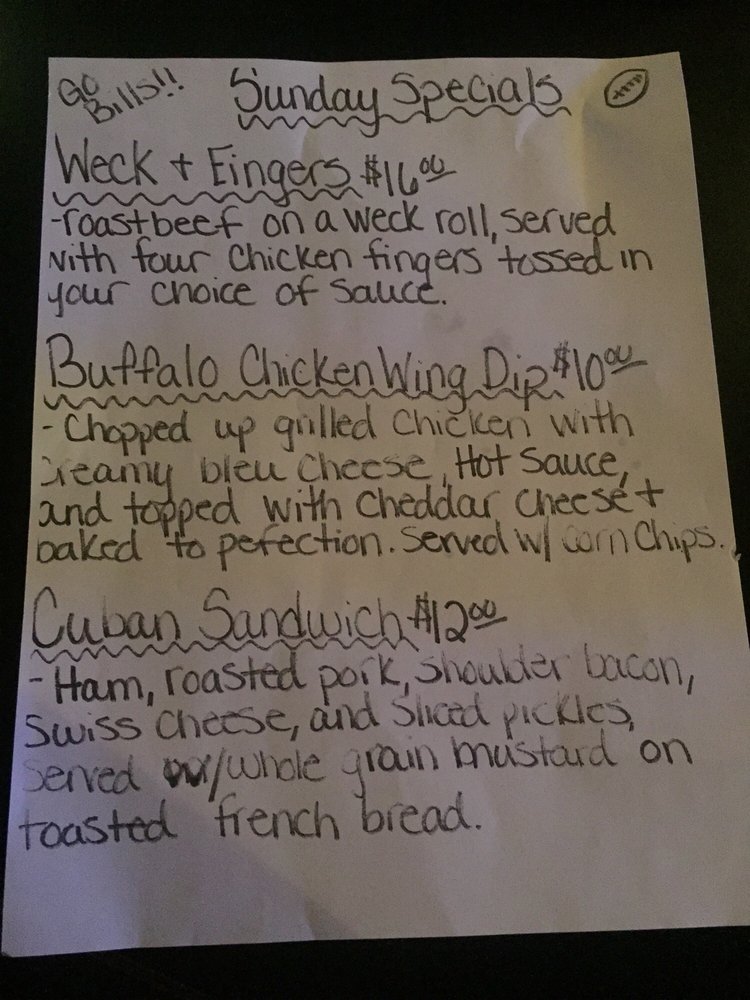 Go Bills!!
Sunday Specials
Weck + Fingers $16.00
-roastbeef on a weck roll, served
with four chicken fingers tossed in
your choice of sauce.
Buffalo Chicken Wing Dip $10.00
- Chopped up grilled chicken with
creamy bleu cheese, Hot Sauce,
and topped with cheddar cheese +
baked to pefection. Served w/ corn chips.
Cuban Sandwich $12.00
- Ham, roasted pork, shoulder bacon,
Swiss cheese, and sliced pickles,
served w/whole grain mustard on
toasted french bread.